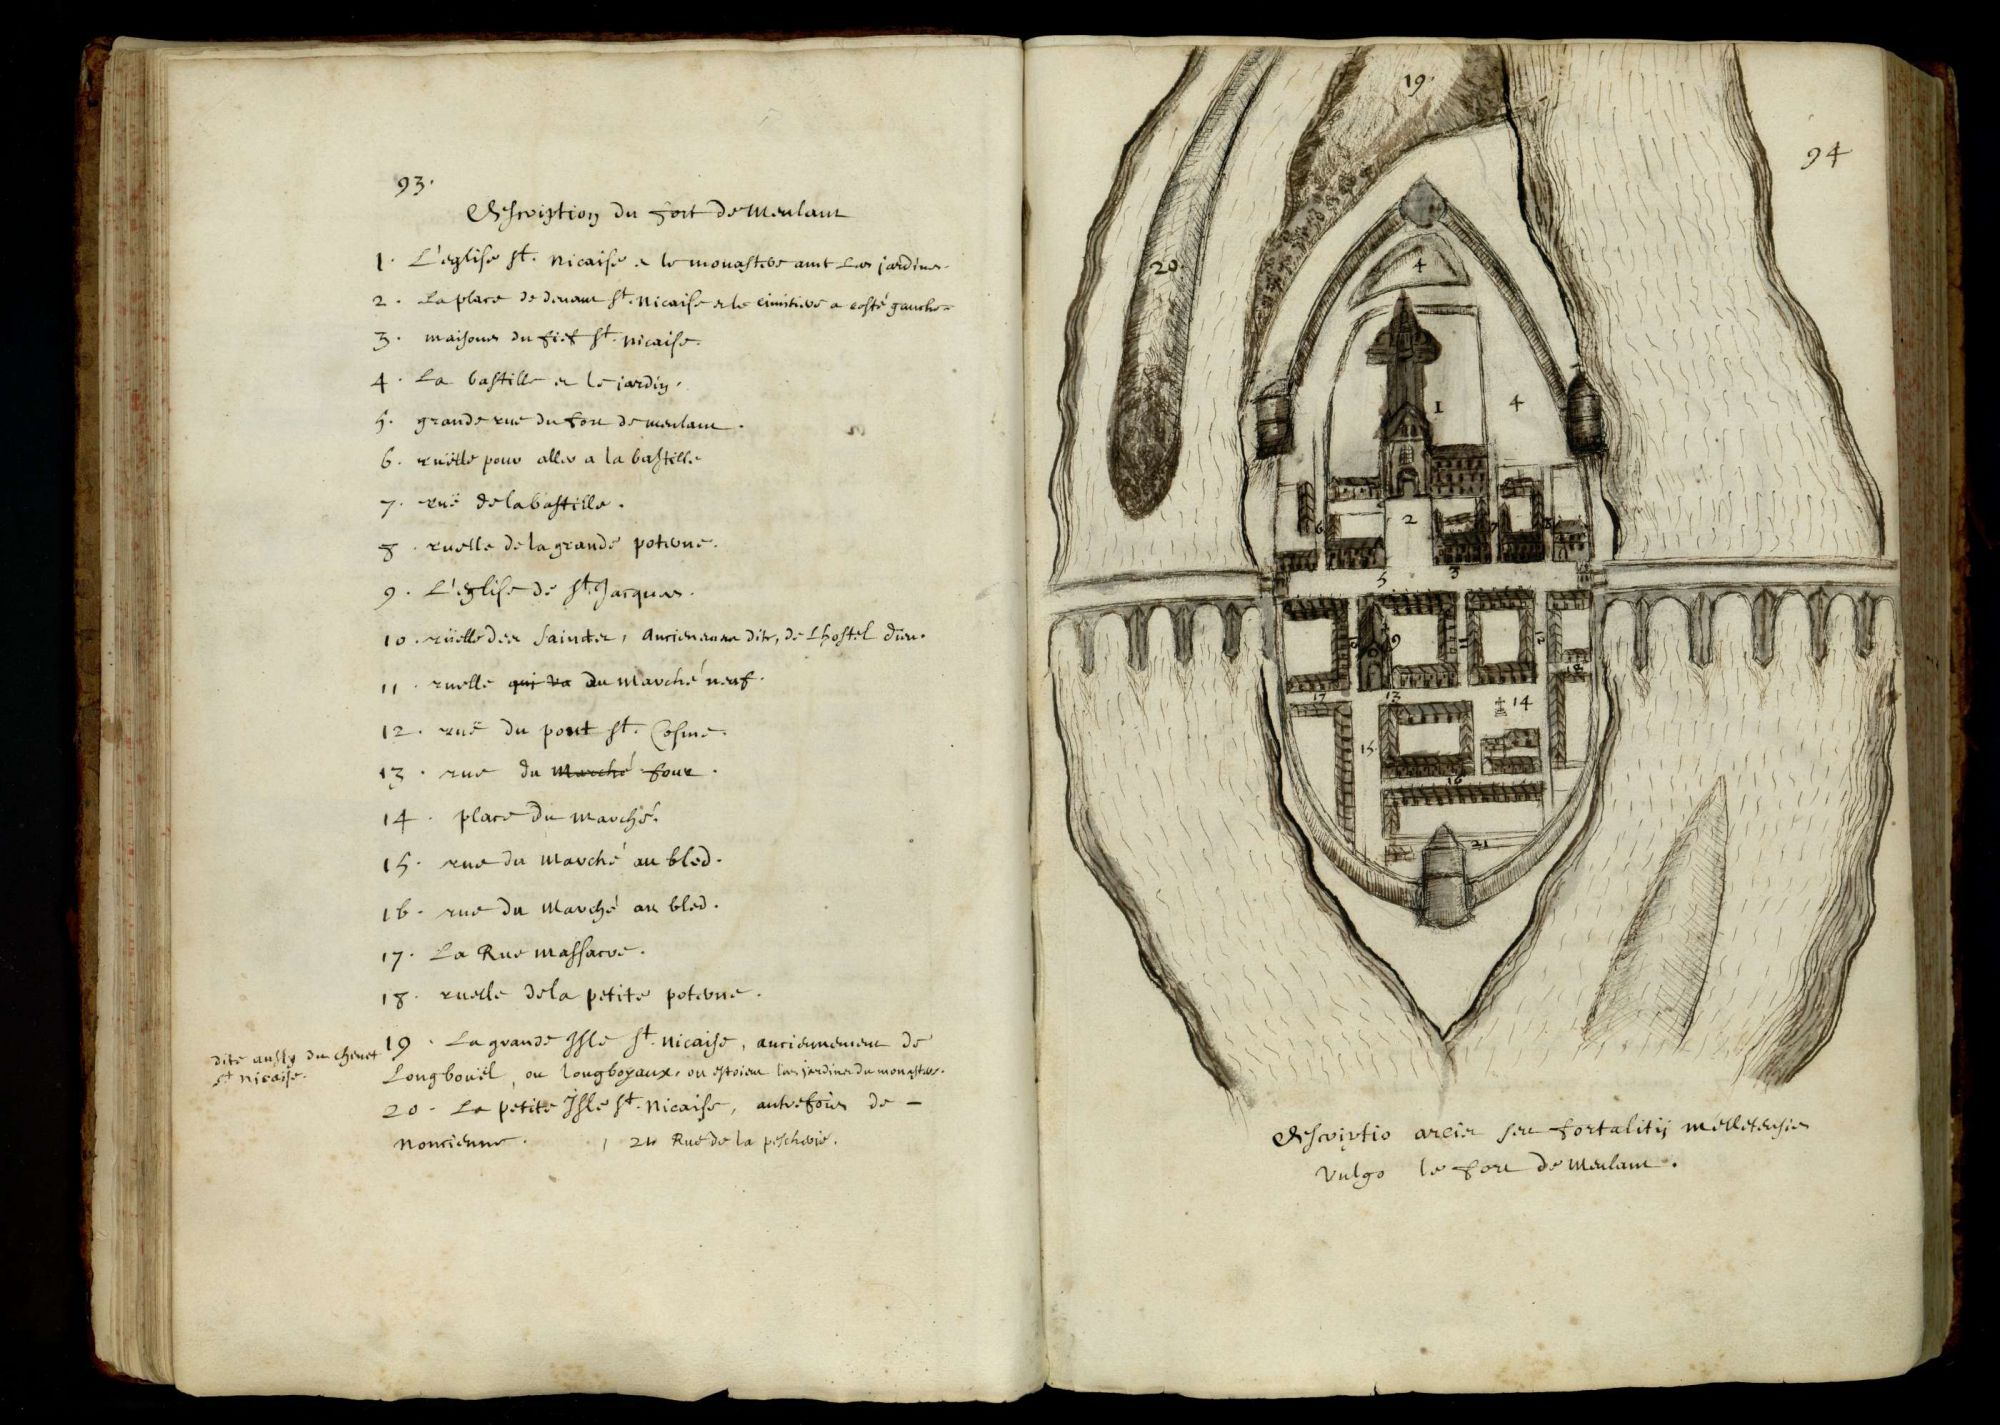 93.
Description du fort de Meulant
1. L'église St. Nicaise & le monastere avec Les jardins.
2. La place de devant St. Nicaise et le cimitiere a costé gauche.
3. maisons du fief St. Nicaise.
4. La bastille et le jardin.
5. grande rue du fort de meulant.
6. ruëlle pour aller a la bastille
7. ruë de la bastille.
8. ruelle de la grande poterne.
9. L'église de St. Jacques.
10. ruëlle des Saincts, Anciennem dite, de Lhostel dieu.
11. ruelle qui va du Marché neuf.
12. ruë du pont St. Cosme.
13. rue du Marché four.
14. place du marché.
15. rue du Marché au bled.
16. rue du Marché au bled.
17. La Rue massacre.
18. ruelle de la petite poterne.
19. La grande Isle St. Nicaise, anciennement de
dite aussy du chevet
St Nicaise.
Longboüel, ou longboyaux, ou estoient les jardins du monastere.
20. La petite Isle St. Nicaise, autrefois de
Noncienne. 21 Rue de la pescherie.
94
19.
20.
4
1
4
2
6
7
8
5
3
10
9
11
12
18
17
13
14
15.
16
21
Descriptio arcis seu fortalitij melletensis
vulgo le fort de Meulant.